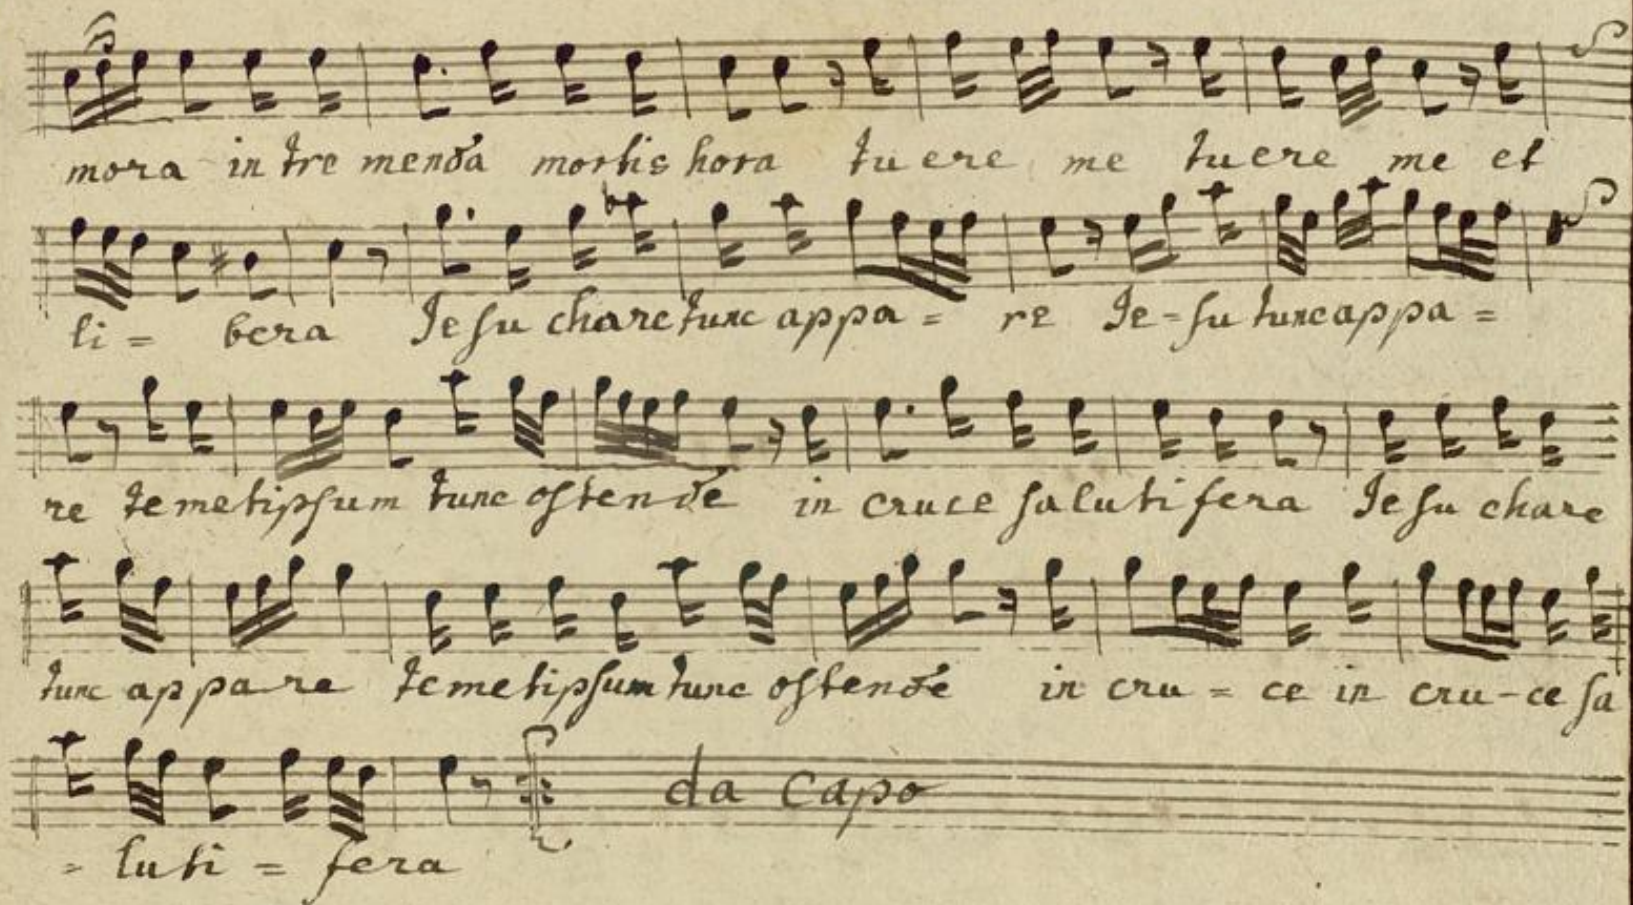 mora in tre menda mortis hora tu ere me tuere me et
li = bera Jesu chare tunc appa = re Je-su tunc appa =
re temetipsum tunc ostende in cruce salutifera Jesu chare
tunc appare temetipsum tunc ostende in cru = ce in cru-ce sa
da capo
= luti = fera